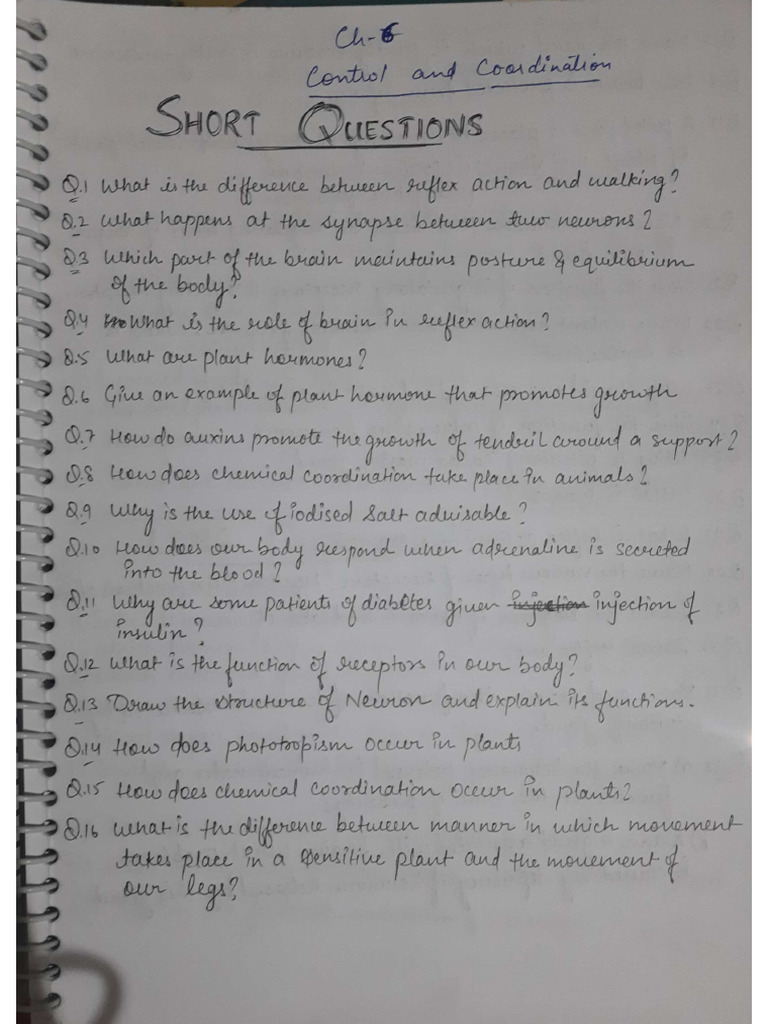 Ch-6
Control and Coordination
SHORT QUESTIONS
Q.1 What is the difference between reflex action and walking?
Q.2 What happens at the synapse between two neurons?
Q.3 Which part of the brain maintains posture & equilibrium
of the body?
Q.4 What is the role of brain in reflex action?
Q.5 What are plant hormones?
Q.6 Give an example of plant hormone that promotes growth
Q.7 How do auxins promote the growth of tendril around a support?
Q.8 How does chemical coordination take place in animals?
Q.9 Why is the use of iodised salt advisable?
Q.10 How does our body respond when adrenaline is secreted
into the blood?
Q.11 Why are some patients of diabetes given injection of
insulin?
Q.12 What is the function of receptors in our body?
Q.13 Draw the structure of Neuron and explain its functions.
Q.14 How does phototropism occur in plants
Q.15 How does chemical coordination occur in plants?
Q.16 What is the difference between manner in which movement
takes place in a sensitive plant and the movement of
our legs?